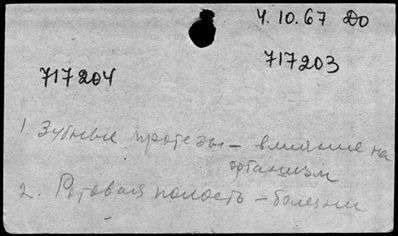 4.10.67 До
717203
717204
1. Зубные протезы – влияние на
организм
2. Ротовая полость – болезни